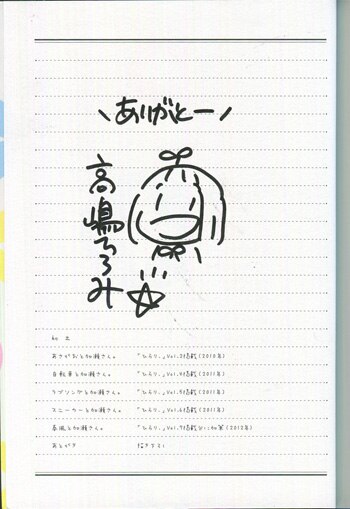 \ありがとー/
高嶋ひろみ
初 出
あさがおと加瀬さん。 「ひらり、」Vol.2掲載(2010年)
自転車と加瀬さん。 「ひらり、」Vol.4掲載(2011年)
ラブソングと加瀬さん。 「ひらり、」Vol.5掲載(2011年)
スニーカーと加瀬さん。 「ひらり、」Vol.6掲載(2011年)
春風と加瀬さん。 「ひらり、」Vol.7掲載分に加筆(2012年)
あとがき 描き下ろし